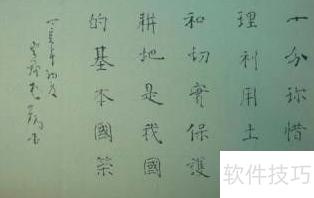 十分珍惜
理利用土
和切實保護
耕地是我國
的基本國策
软件技巧